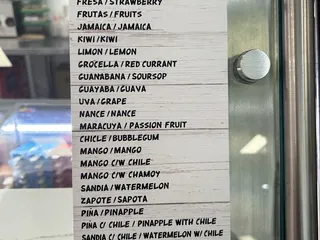 FRESA / STRAWBERRY
FRUTAS / FRUITS
JAMAICA / JAMAICA
KIWI / KIWI
LIMON / LEMON
GROCELLA / RED CURRANT
GUANABANA / SOURSOP
GUAYABA / GUAVA
UVA / GRAPE
NANCE / NANCE
MARACUYA / PASSION FRUIT
CHICLE / BUBBLEGUM
MANGO / MANGO
MANGO C/W CHILE
MANGO C/W CHAMOY
SANDIA / WATERMELON
ZAPOTE / SAPOTA
PIÑA / PINAPPLE
PIÑA C/ CHILE / PINAPPLE WITH CHILE
SANDIA C/ CHILE / WATERMELON W/ CHILE